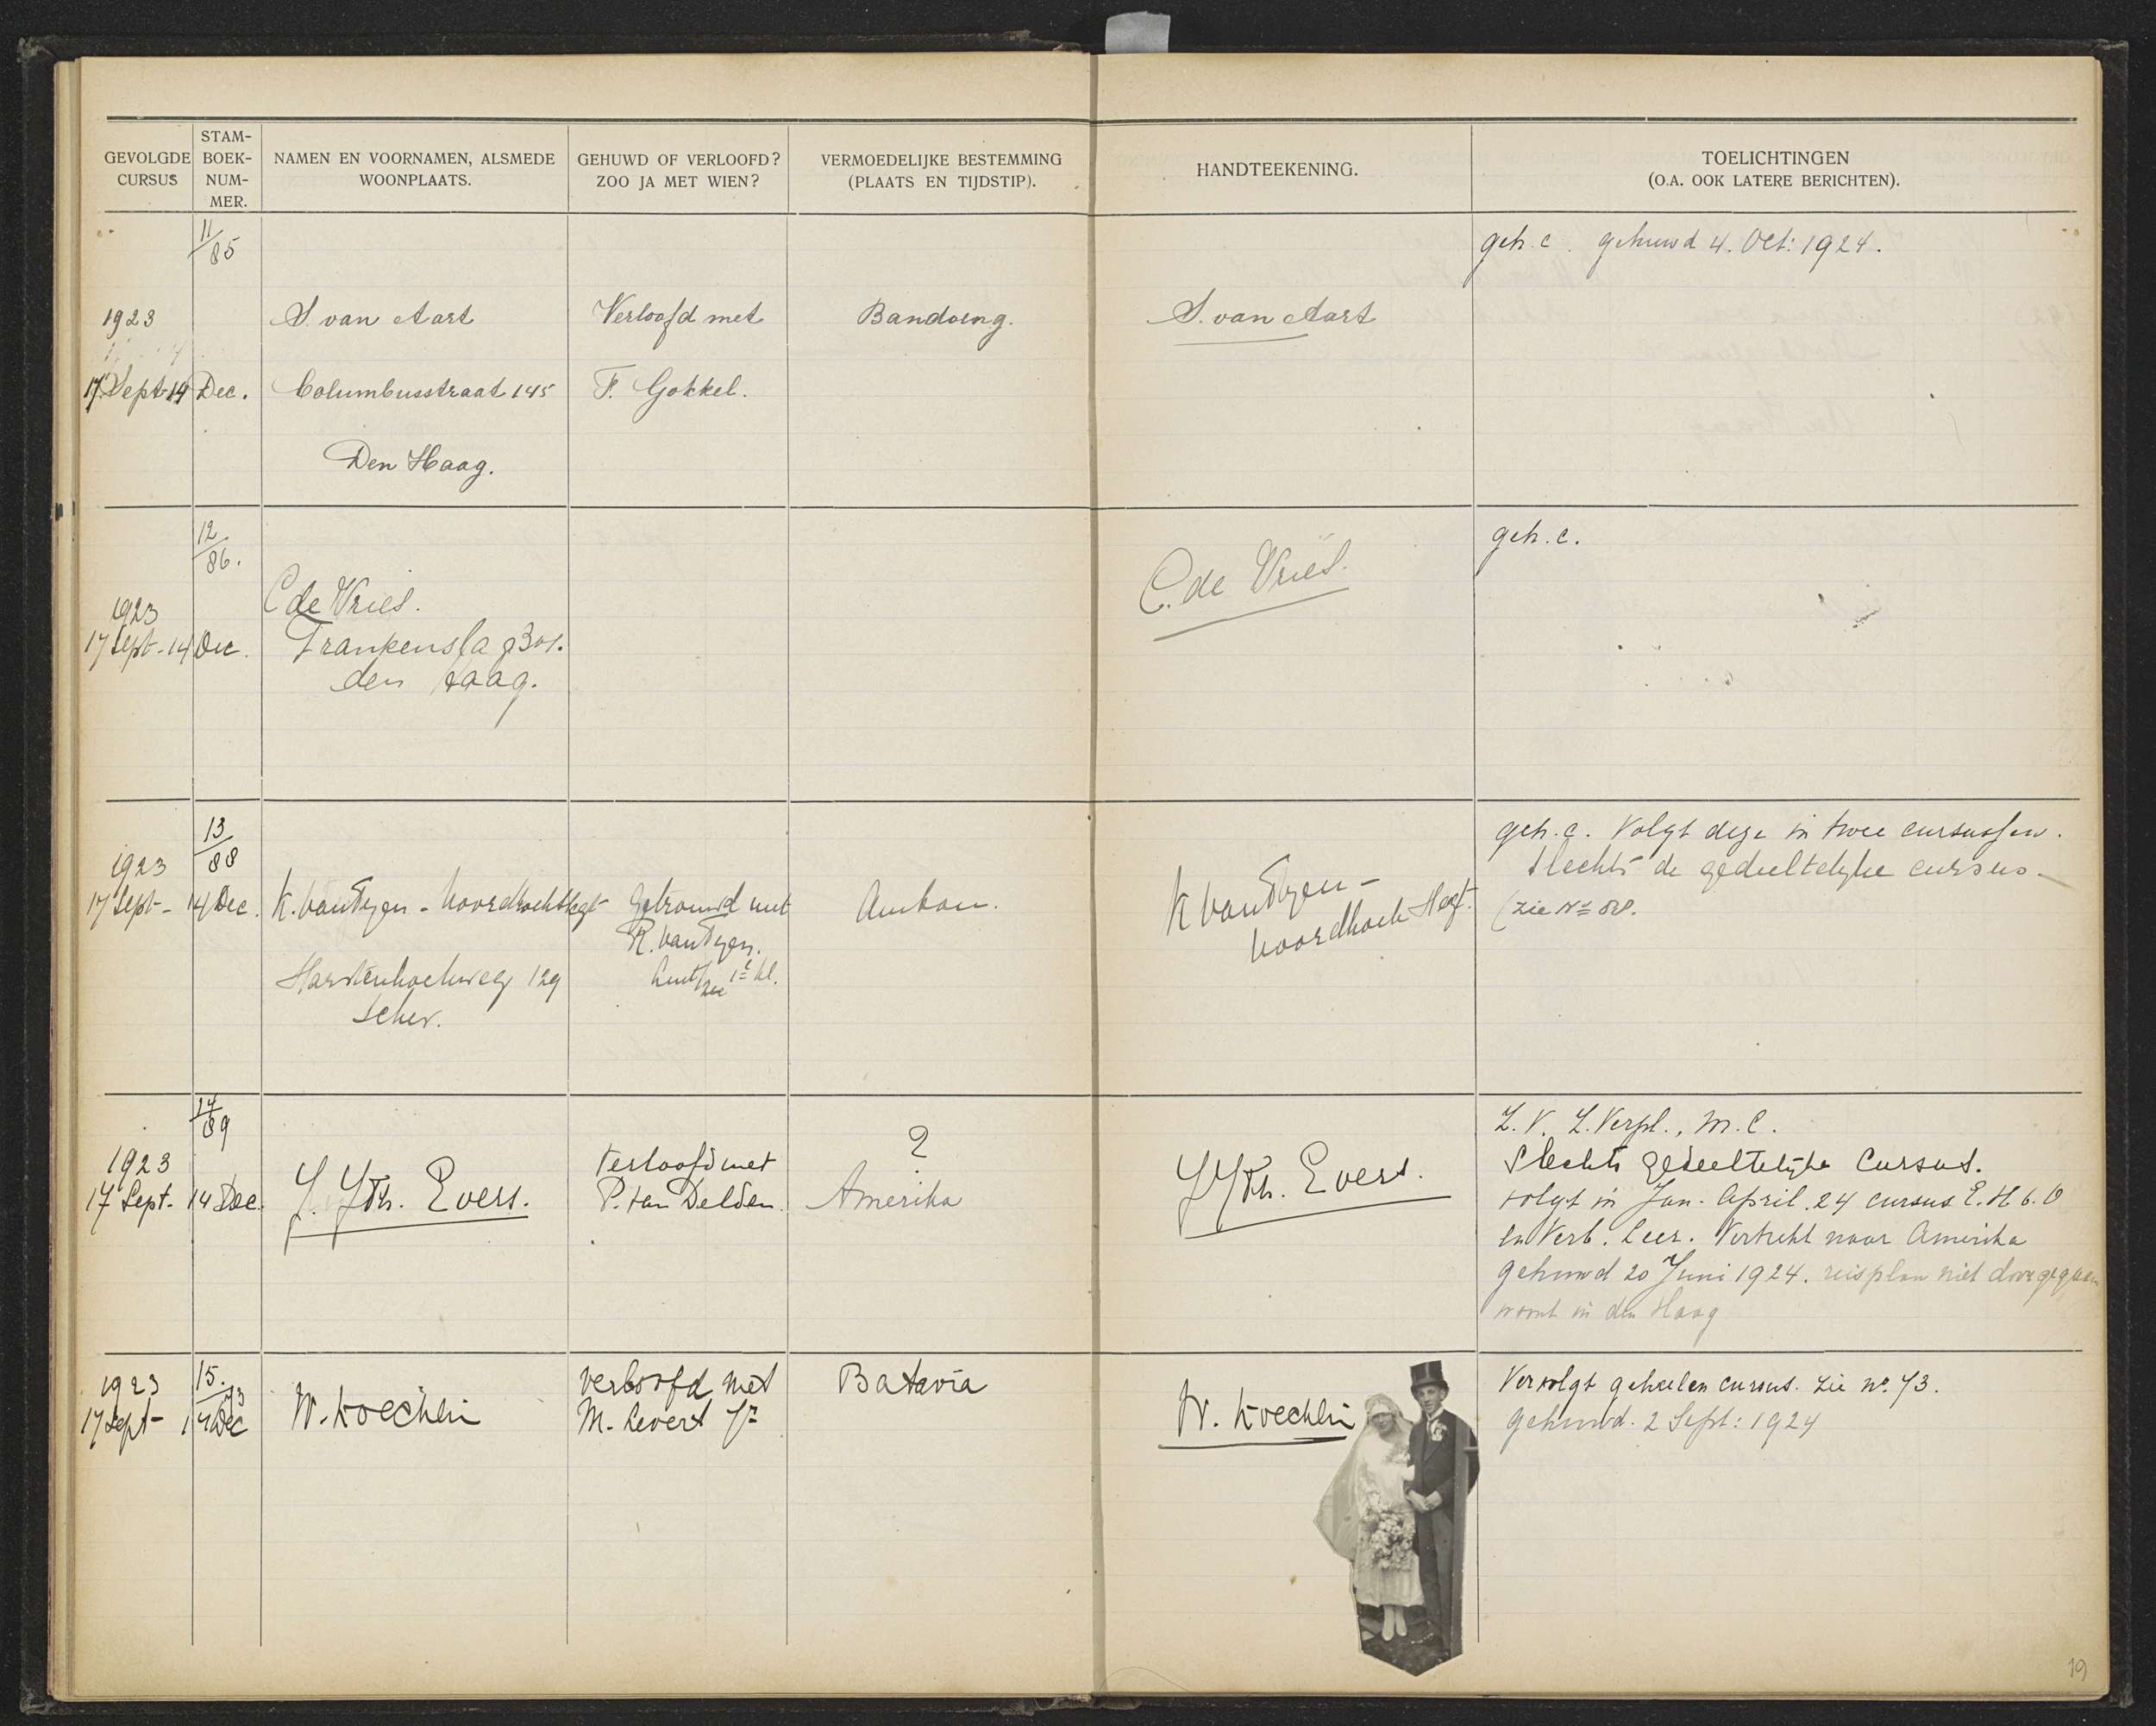 GEVOLGDE CURSUS
STAM-BOEK-NUM-MER.
NAMEN EN VOORNAMEN, ALSMEDE WOONPLAATS.
GEHUWD OF VERLOOFD? ZOO JA MET WIEN?
VERMOEDELIJKE BESTEMMING (PLAATS EN TIJDSTIP).
HANDTEEKENING.
TOELICHTINGEN (O.A. OOK LATERE BERICHTEN).
11/85
geh. c. gehuwd 4. Oct: 1924.
1923 S. van Aart Verloofd met Bandoeng. S. van Aart
17 Sept-14 Dec. Columbusstraat 145 F. Gokkel.
Den Haag.
12/86.
geh. c.
C de Vries. C. de Vries.
1923
17 Sept-14 Dec. Frankenslag 301.
den Haag.
13/88
geh. c. Volgt deze in twee cursussen.
slechts de gedeeltelijke cursus.
(zie No 88.
1923
17 Sept- 14 Dec. K. van Tijen - Noordhoek Hegt Getrouwd met Ambon. K van Tijen -
Noordhoek Hegt.
R. van Tijen.
Luit/zee 1e kl.
129
Schev.
14/89
Z. V. Z. Verpl., M. C.
1923 Verloofd met ? Slechts gedeeltelijke Cursus.
17 Sept. 14 Dec. J. J. Th. Evers. P. van Delden. Amerika J J Th. Evers.
volgt in Jan. April. 24 cursus E. H. b. O
en Verb. Leer. Vertrekt naar Amerika
gehuwd 20 Juni 1924. reisplan niet doorgegaan
woont in den Haag
1923 15./73 verloofd met Batavia Vervolgt geheelen cursus. zie no. 73.
17 Sept- 14 Dec W. Koechlin M. Levert Jr W. Koechlin gehuwd. 2 Sept: 1924
19